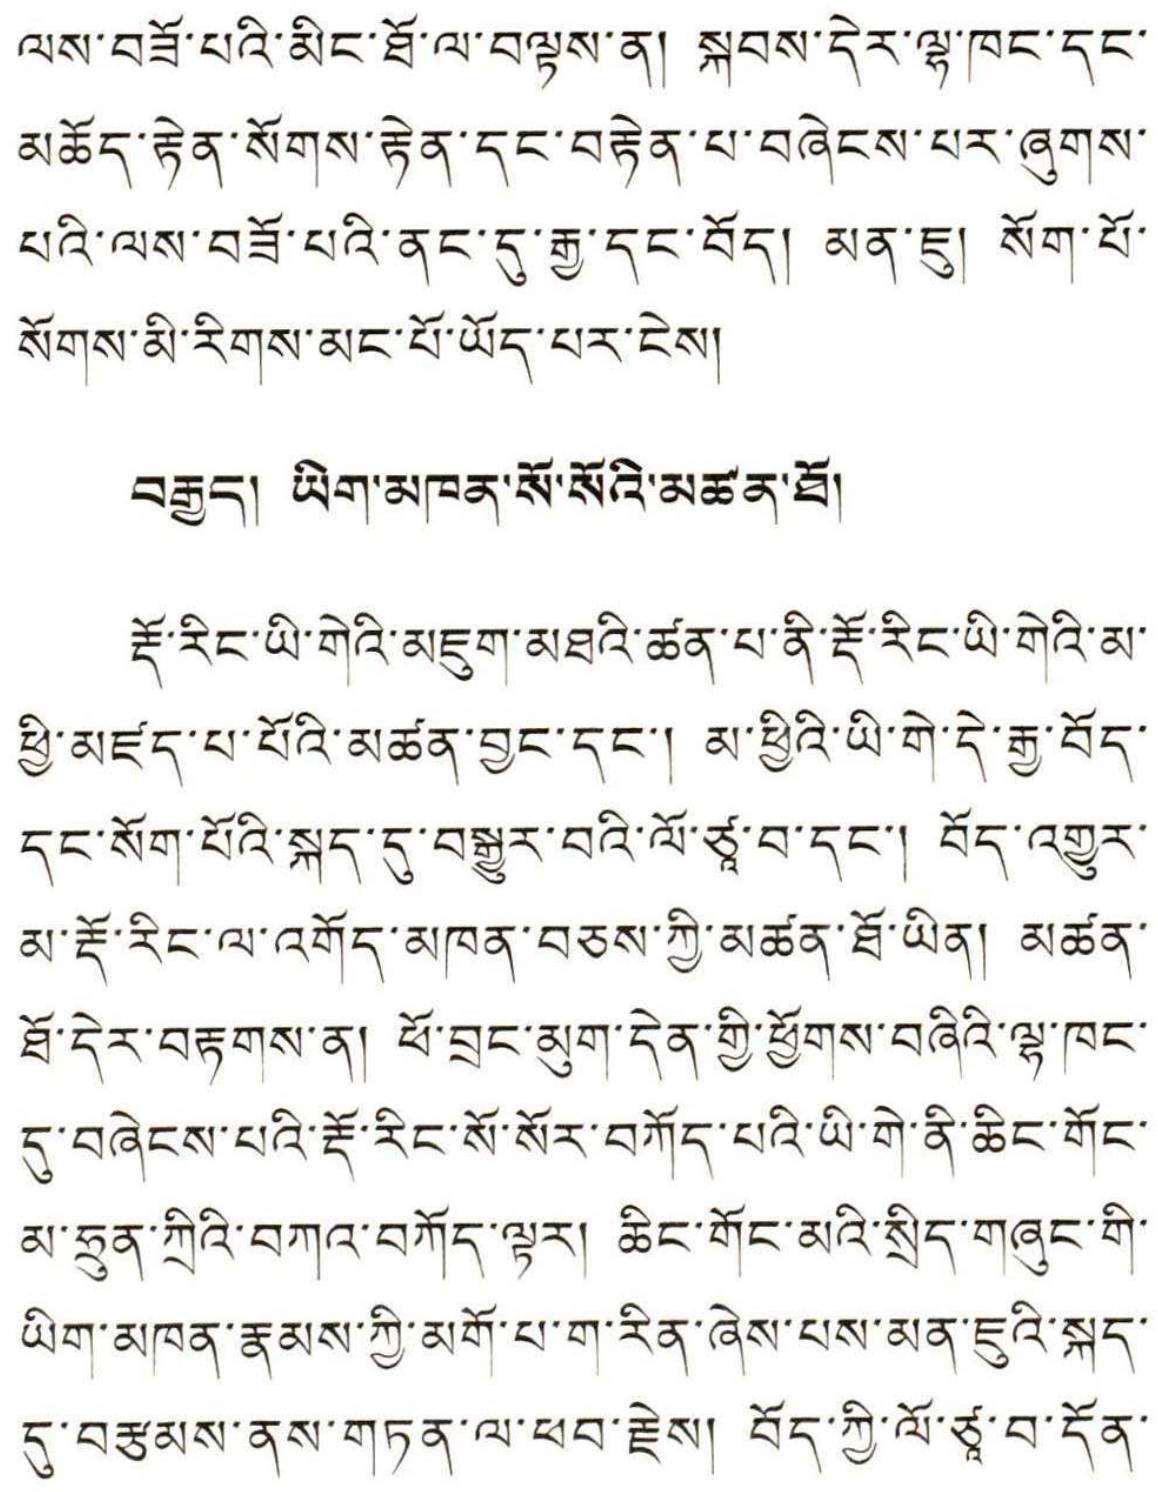 ལས་བཟོ་པའི་མིང་ཐོ་ལ་བལྟས་ན། སྐབས་དེར་ལྷ་ཁང་དང་
མཆོད་རྟེན་སོགས་རྟེན་དང་བརྟེན་པ་བཞེངས་པར་ཞུགས་
པའི་ལས་བཟོ་པའི་ནང་དུ་རྒྱ་དང་བོད། མན་ཇུ། སོག་པོ་
སོགས་མི་རིགས་མང་པོ་ཡོད་པར་ངེས།
བརྒྱད། ཡིག་མཁན་སོ་སོའི་མཚན་ཐོ།
རྡོ་རིང་ཡི་གེའི་མཇུག་མཐའི་ཚན་པ་ནི་རྡོ་རིང་ཡི་གེའི་མ་
ཕྱི་མཛད་པ་པོའི་མཚན་བྱང་དང་། མ་ཕྱིའི་ཡི་གེ་དེ་རྒྱ་བོད་
དང་སོག་པོའི་སྐད་དུ་བསྒྱུར་བའི་ལོ་ཙཱ་བ་དང་། བོད་འགྱུར་
མ་རྡོ་རིང་ལ་འགོད་མཁན་བཅས་ཀྱི་མཚན་ཐོ་ཡིན། མཚན་
ཐོ་དེར་བརྟགས་ན། ཕོ་བྲང་མུག་དེན་གྱི་ཕྱོགས་བཞིའི་ལྷ་ཁང་
དུ་བཞེངས་པའི་རྡོ་རིང་སོ་སོར་བཀོད་པའི་ཡི་གེ་ནི་ཆིང་གོང་
མ་ཧུན་ཀྲིའི་བཀའ་བཀོད་ལྟར། ཆིང་གོང་མའི་སྲིད་གཞུང་གི་
ཡིག་མཁན་རྣམས་ཀྱི་མགོ་པ་ག་རིན་ཞེས་པས་མན་ཇུའི་སྐད་
དུ་བརྩམས་ནས་གཏན་ལ་ཕབ་རྗེས། བོད་ཀྱི་ལོ་ཙཱ་བ་དོན་